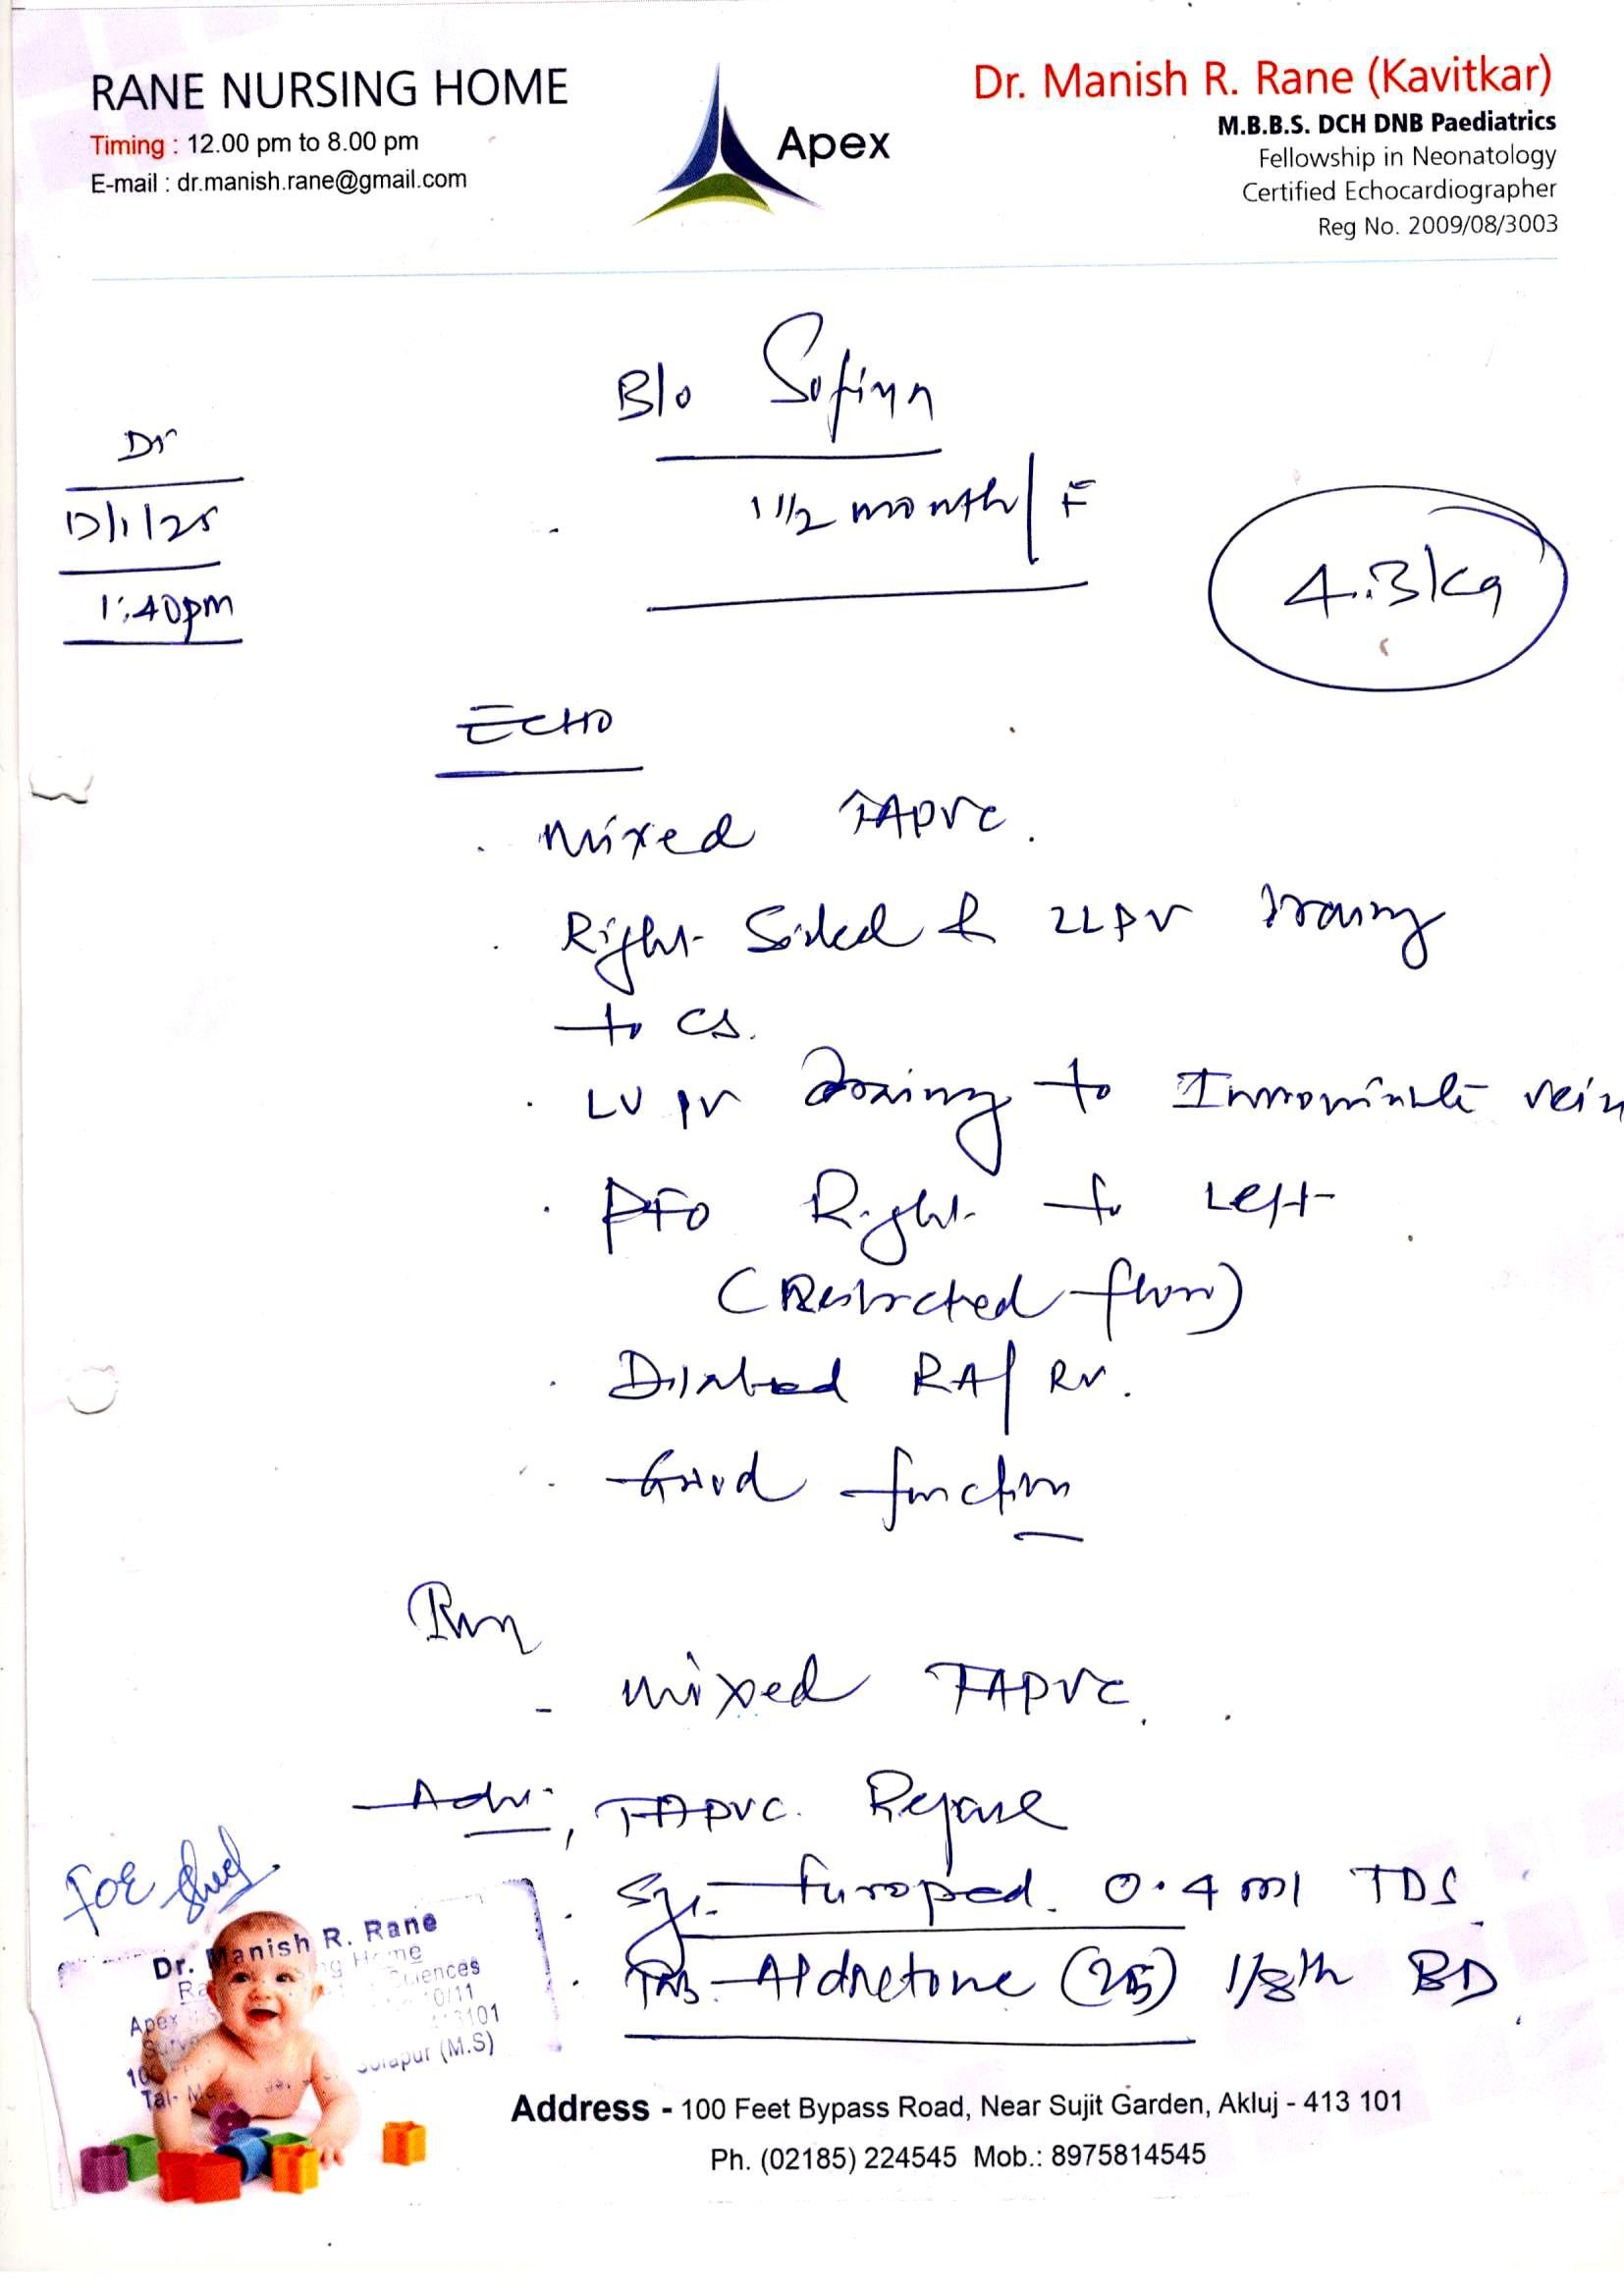 RANE NURSING HOME
Timing : 12.00 pm to 8.00 pm
E-mail : dr.manish.rane@gmail.com
Apex
Dr. Manish R. Rane (Kavitkar)
M.B.B.S. DCH DNB Paediatrics
Fellowship in Neonatology
Certified Echocardiographer
Reg No. 2009/08/3003
B/o Sofiya
1 1/2 month/F
4.3kg
Dr
/1/25
1:40pm
ECHO
. mixed TAPVC.
. Right Sided & 2LPV
to CS.
. LU PV to Innominate vein
. PFO Right to Left
(Restricted flow)
. Dilated RA/RV.
. Good function
- mixed TAPVC.
Adv:, TAPVC.
. Syr. Furoped. 0.4 ml TDS
. Tab. Aldactone (25) 1/8th BD
Dr. Manish R. Rane
Sciences
Apex
Solapur (M.S)
Address - 100 Feet Bypass Road, Near Sujit Garden, Akluj - 413 101
Ph. (02185) 224545 Mob.: 8975814545